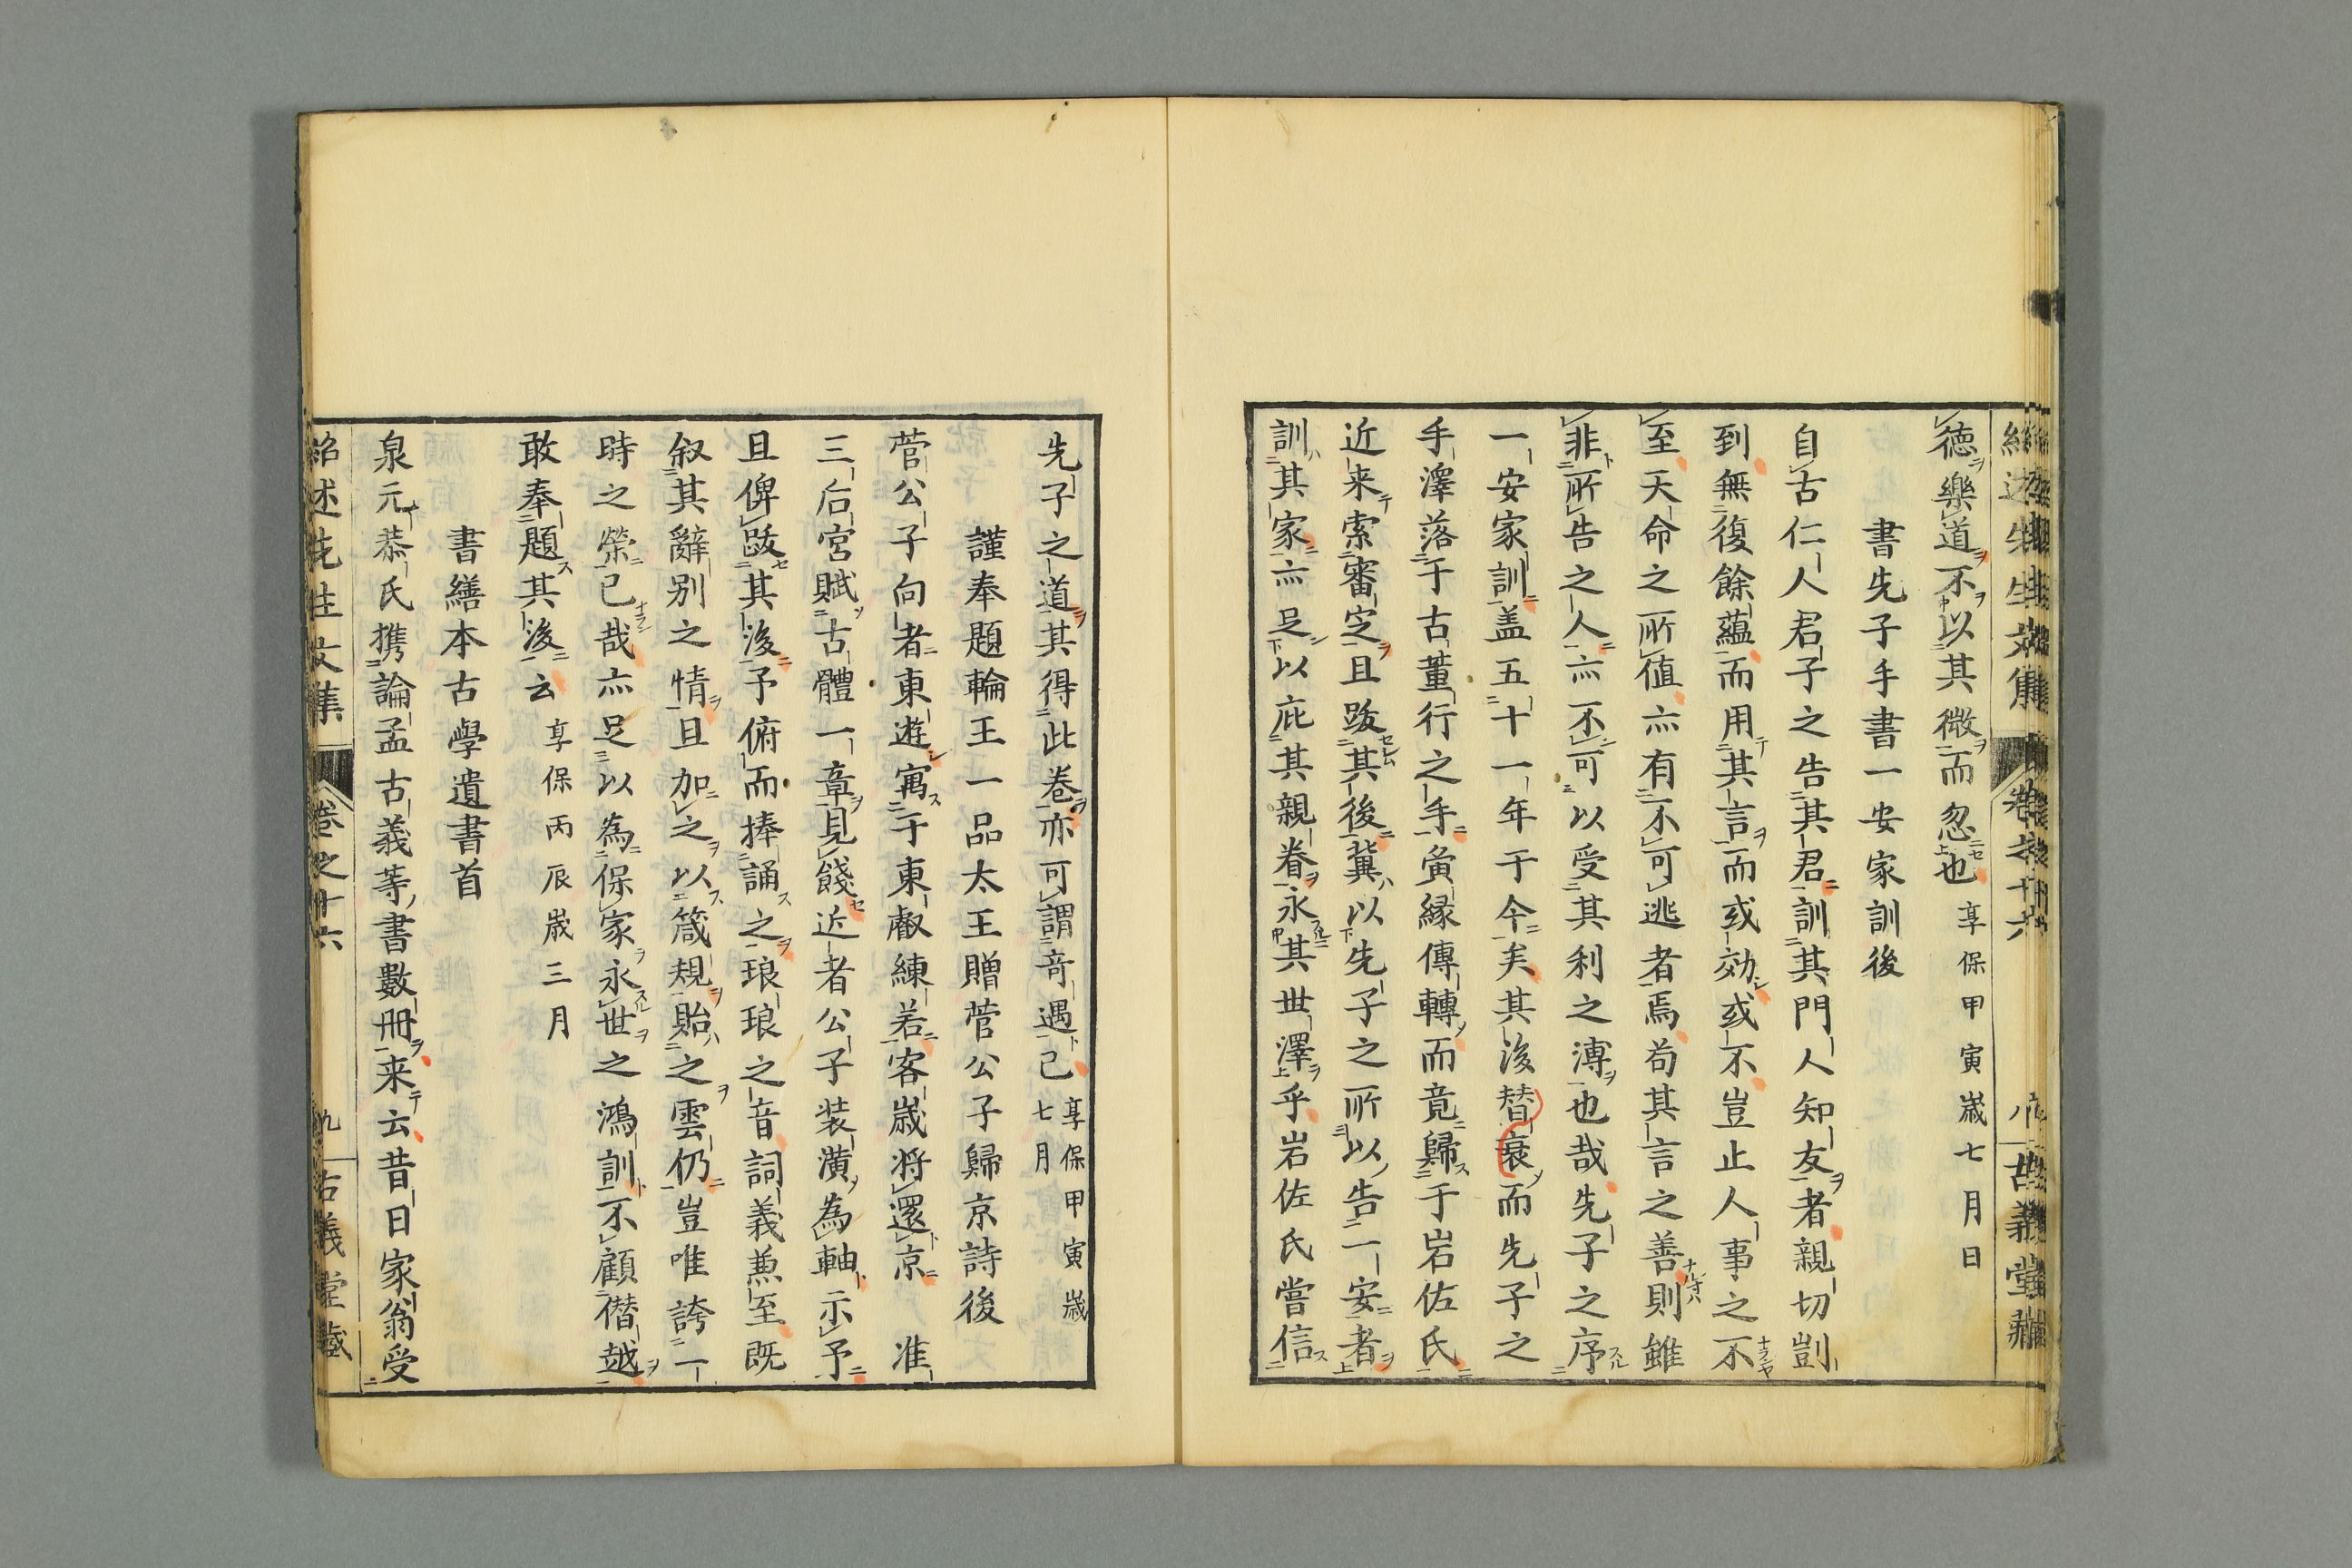 德樂道不以其微而忽也 享保甲寅歲七月日
書先子手書一安家訓後
自古仁人君子之告其君訓其門人知友者親切剴
到無復餘蘊而用其言而或効或不豈止人事之不
至天命之所値亦有不可逃者焉苟其言之善則雖
非所告之人亦不可以受其利之溥也哉先子之序
一安家訓盖五十一年于今矣其後替衰而先子之
手澤落于古董行之手夤縁傳轉而竟歸于岩佐氏
近来索審定且跋其後冀以先子之所以告一安者
訓其家亦足以庇其親眷永其世澤乎岩佐氏嘗信
先子之道其得此卷亦可謂奇遇已 享保甲寅歲七月
謹奉題輪王一品太王贈菅公子歸京詩後
菅公子向者東遊寓于東叡練若客歲将還京 准
三后宮賦古體一章見餞近者公子装潢為軸示予
且俾跋其後予俯而捧誦之琅琅之音詞義兼至既
叙其辭別之情且加之以箴規貽之雲仍豈唯誇一
時之榮已哉亦足以為保家永世之鴻訓不顧僭越
敢奉題其後云 享保丙辰歲三月
書繕本古學遺書首
泉元恭氏携論孟古義等書數冊来云昔日家翁受
紹述先生文集 卷之十六 九 古義堂藏